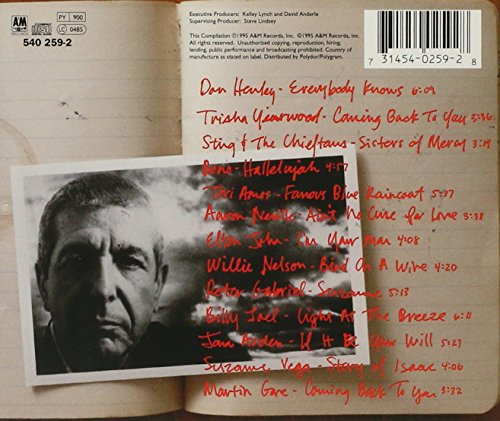 A&M
RECORDS
COMPACT
disc
DIGITAL AUDIO
PY 900
LC 0485
540 259-2
Executive Producers: Kelley Lynch and David Anderle
Supervising Producer: Steve Lindsey
This Compilation ℗1995 A&M Records, Inc. ©1995 A&M Records, Inc.
All rights reserved. Unauthorized copying, reproduction, hiring,
lending, public performance and broadcasting prohibited. Country of
manufacture as stated on label. Distributed by Polydor/Polygram.
7 31454-0259-2 8
Don Henley - Everybody Knows 6:09
Trisha Yearwood - Coming Back To You 3:36
Sting & The Chieftans - Sisters of Mercy
Bono - Hallelujah 4:57
Tori Amos - Famous Blue Raincoat 5:37
Aaron Neville - Ain't No Cure for Love 3:38
Elton John - I'm Your Man 4:08
Willie Nelson - Bird On A Wire 4:20
Peter Gabriel - Suzanne 5:13
Billy Joel - Light As The Breeze
Jann Arden - If It Be Your Will 5:27
Suzanne Vega - Story of Isaac 4:06
Martin Gore - Coming Back To You 3:32